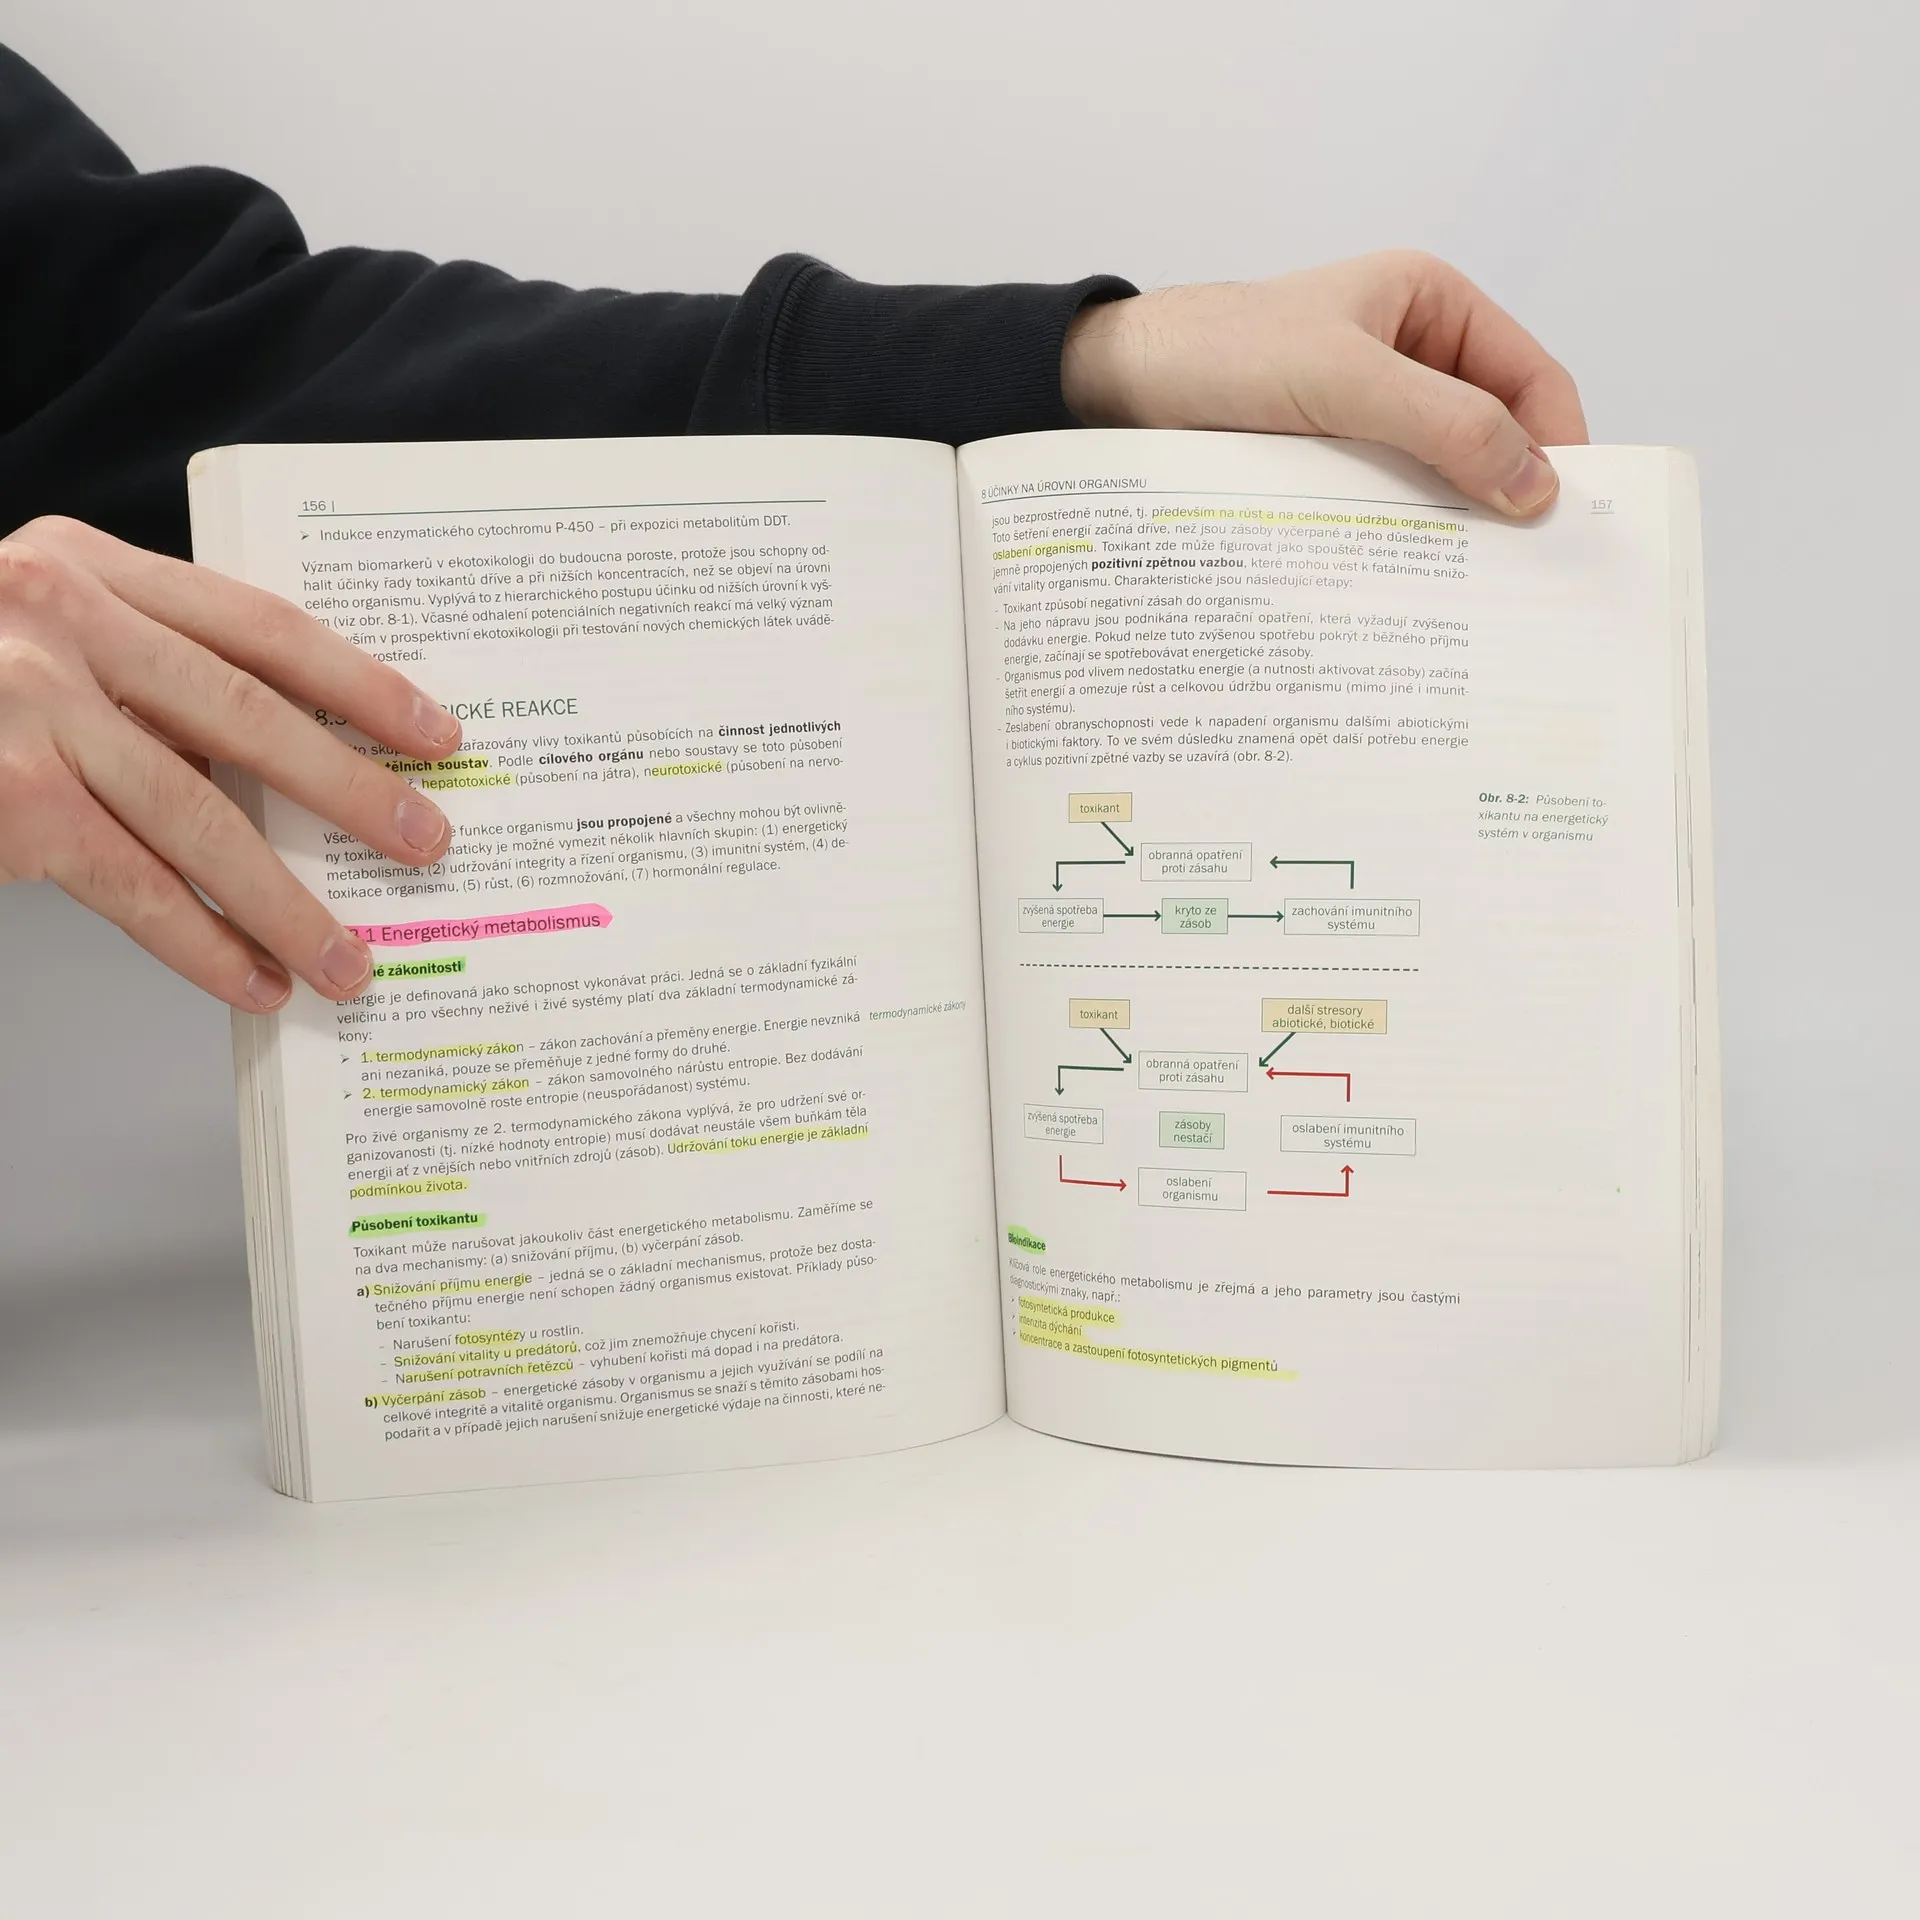 156 |
➢ Indukce enzymatického cytochromu P-450 – při expozici metabolitům DDT.
Význam biomarkerů v ekotoxikologii do budoucna poroste, protože jsou schopny od-
halit účinky řady toxikantů dříve a při nižších koncentracích, než se objeví na úrovni
celého organismu. Vyplývá to z hierarchického postupu účinku od nižších úrovní k vyš-
(viz obr. 8-1). Včasné odhalení potenciálních negativních reakcí má velký význam
v prospektivní ekotoxikologii při testování nových chemických látek uvádě-
REAKCE
zařazovány vlivy toxikantů působících na činnost jednotlivých
soustav. Podle cílového orgánu nebo soustavy se toto působení
hepatotoxické (působení na játra), neurotoxické (působení na nervo-
funkce organismu jsou propojené a všechny mohou být ovlivně-
ny je možné vymezit několik hlavních skupin: (1) energetický
metabolismus, (2) udržování integrity a řízení organismu, (3) imunitní systém, (4) de-
toxikace organismu, (5) růst, (6) rozmnožování, (7) hormonální regulace.
1 Energetický metabolismus
zákonitosti
Energie je definovaná jako schopnost vykonávat práci. Jedná se o základní fyzikální
veličinu a pro všechny neživé i živé systémy platí dva základní termodynamické zá-
kony:
➢ 1. termodynamický zákon – zákon zachování a přeměny energie. Energie nevzniká
ani nezaniká, pouze se přeměňuje z jedné formy do druhé.
termodynamické zákony
➢ 2. termodynamický zákon – zákon samovolného nárůstu entropie. Bez dodávání
energie samovolně roste entropie (neuspořádanost) systému.
Pro živé organismy ze 2. termodynamického zákona vyplývá, že pro udržení své or-
ganizovanosti (tj. nízké hodnoty entropie) musí dodávat neustále všem buňkám těla
energii ať z vnějších nebo vnitřních zdrojů (zásob). Udržování toku energie je základní
podmínkou života.
Působení toxikantu
Toxikant může narušovat jakoukoliv část energetického metabolismu. Zaměříme se
na dva mechanismy: (a) snižování příjmu, (b) vyčerpání zásob.
a) Snižování příjmu energie – jedná se o základní mechanismus, protože bez dosta-
tečného příjmu energie není schopen žádný organismus existovat. Příklady půso-
bení toxikantu:
– Narušení fotosyntézy u rostlin.
– Snižování vitality u predátorů, což jim znemožňuje chycení kořisti.
– Narušení potravních řetězců – vyhubení kořisti má dopad i na predátora.
b) Vyčerpání zásob – energetické zásoby v organismu a jejich využívání se podílí na
celkové integritě a vitalitě organismu. Organismus se snaží s těmito zásobami hos-
podařit a v případě jejich narušení snižuje energetické výdaje na činnosti, které ne-
8 ÚČINKY NA ÚROVNI ORGANISMU
157
jsou bezprostředně nutné, tj. především na růst a na celkovou údržbu organismu.
Toto šetření energií začíná dříve, než jsou zásoby vyčerpané a jeho důsledkem je
oslabení organismu. Toxikant zde může figurovat jako spouštěč série reakcí vzá-
jemně propojených pozitivní zpětnou vazbou, které mohou vést k fatálnímu snižo-
vání vitality organismu. Charakteristické jsou následující etapy:
- Toxikant způsobí negativní zásah do organismu.
- Na jeho nápravu jsou podnikána reparační opatření, která vyžadují zvýšenou
dodávku energie. Pokud nelze tuto zvýšenou spotřebu pokrýt z běžného příjmu
energie, začínají se spotřebovávat energetické zásoby.
- Organismus pod vlivem nedostatku energie (a nutnosti aktivovat zásoby) začíná
šetřit energií a omezuje růst a celkovou údržbu organismu (mimo jiné i imunit-
ního systému).
- Zeslabení obranyschopnosti vede k napadení organismu dalšími abiotickými
i biotickými faktory. To ve svém důsledku znamená opět další potřebu energie
a cyklus pozitivní zpětné vazby se uzavírá (obr. 8-2).
Obr. 8-2: Působení to-
xikantu na energetický
systém v organismu
toxikant
obranná opatření
proti zásahu
zvýšená spotřeba
energie
kryto ze
zásob
zachování imunitního
systému
toxikant
další stresory
abiotické, biotické
obranná opatření
proti zásahu
zvýšená spotřeba
energie
zásoby
nestačí
oslabení imunitního
systému
oslabení
organismu
Bioindikace
Klíčová role energetického metabolismu je zřejmá a jeho parametry jsou častými
diagnostickými znaky, např.:
› fotosyntetická produkce
› intenzita dýchání
› koncentrace a zastoupení fotosyntetických pigmentů